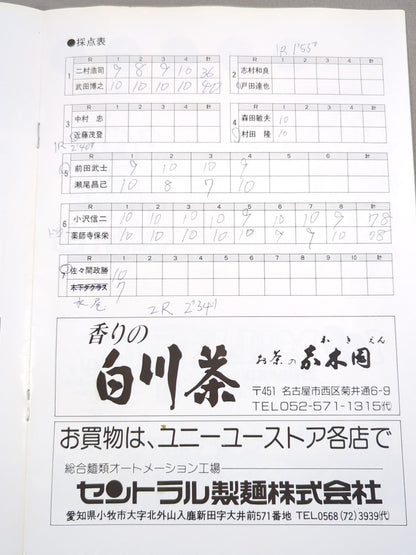 ●採点表
1R 1'55"
R 1 2 3 4 計
1 二村浩司 9 8 9 10 36
武田博之 10 10 10 10 40
R 1 2 3 4 計
2 志村和良
戸田達也
R 1 2 3 4 計
3 中村 忠
近藤茂登
R 1 2 3 4 計
4 森田敏夫 10
村田 隆 10
1R 2'40"
R 1 2 3 4 5 6 計
5 前田武士 9 10 10 9
瀬尾昌己 10 8 7 10
R 1 2 3 4 5 6 7 8 計
6 小沢信二 10 10 10 9 10 10 9 78
薬師寺保栄 10 10 10 10 9 9 10 78
R 1 2 3 4 5 6 7 8 9 10 計
7 佐々間政勝 10
木下ダグラス 7
2R 2'34"
香りの
白川茶
お茶の
〒451 名古屋市西区菊井通6-9
TEL052-571-1315㈹
お買物は、ユニーユーストア各店で
総合麺類オートメーション工場
セントラル製麺株式会社
愛知県小牧市大字北外山入鹿新田字大井前571番地 TEL0568(72)3939㈹